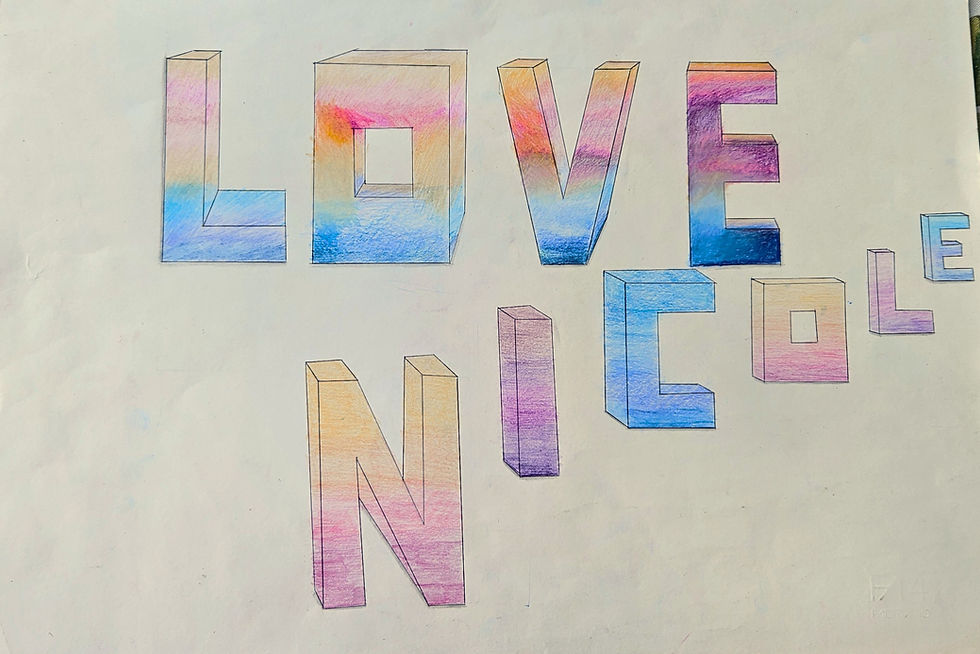 LOVE
NICOLE